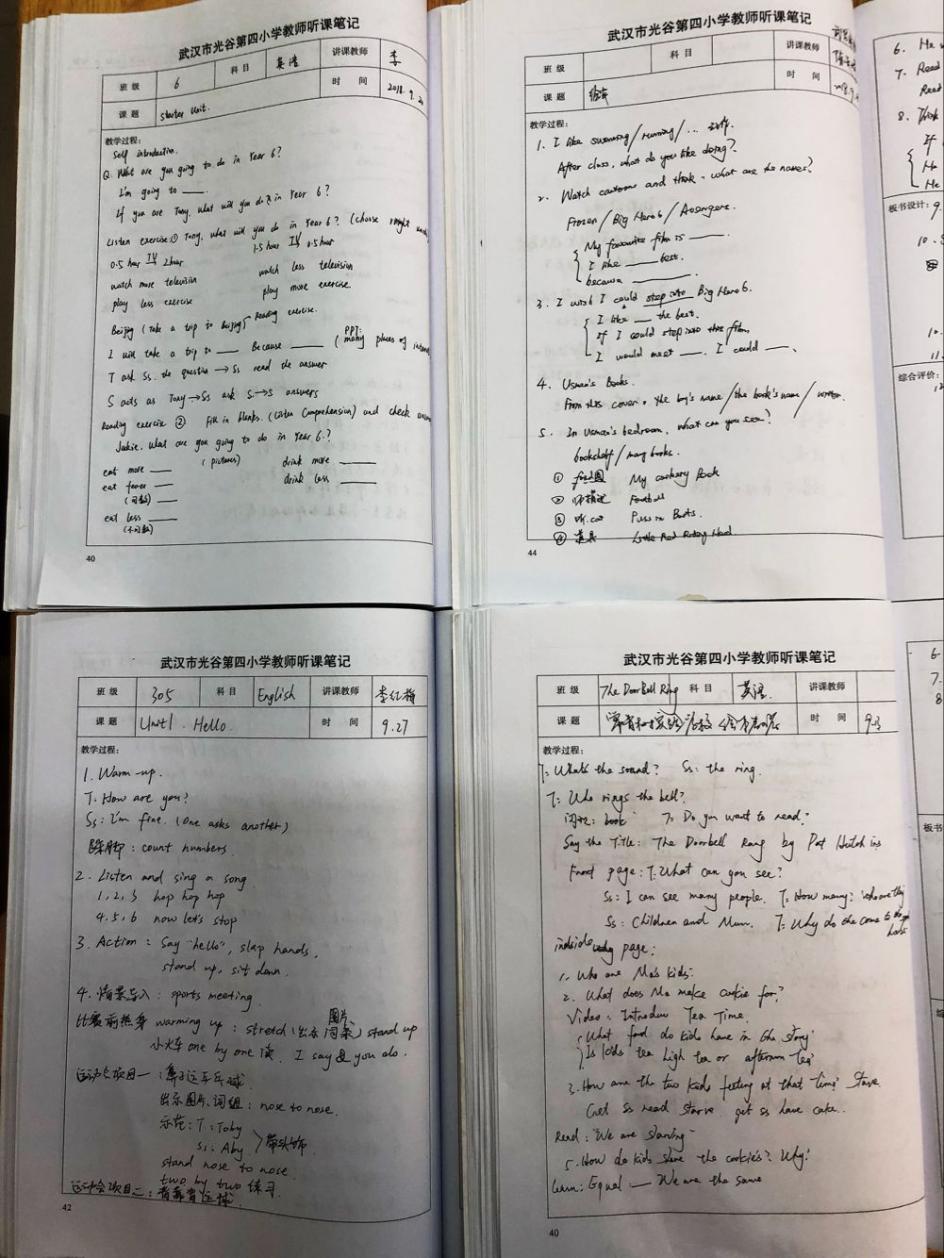 武汉市光谷第四小学教师听课笔记
班级 6 科目 英语 讲课教师 李
课题 Starter Unit. 时间 2018.9.2
教学过程:
Self introduction.
Q. What are you going to do in Year 6?
I'm going to ___.
If you are Tony, what will you do in Year 6?
Listen exercise① Tony, what will you do in Year 6? (choose
0.5 hour TV → 2 hour 1.5 hour TV 0.5 hour
watch more television watch less television
play less exercise play more exercise.
Beijing (Take a trip to Beijing) Reading exercise.
I will take a trip to ___ Because ___ ( PPT: many places of
T ask Ss. the question → Ss read the answer
S acts as Tony → Ss ask S → S answers
Reading exercise ② Fill in blanks. (Listen Comprehension) and check
Jackie. what are you going to do in Year 6?
eat more ___ (pictures) drink more ___
eat fewer ___ drink less ___
(可数)
eat less ___
(不可数)
40
武汉市光谷第四小学教师听课笔记
班级 科目 讲课教师
课题 绘本 时间
教学过程:
1. I like swimming / running / ... 动作.
After class, what do you like doing?
2. Watch cartoons and think, what are the names?
Frozen / Big Hero 6 / Avengers.
My favourite film is ___.
I like ___ best.
because ___.
3. I wish I could step into Big Hero 6.
I like ___ the best.
If I could step into this film,
I would meet ___. I could ___.
4. Usman's Books.
From this cover, the boy's name / the book's name / writer.
5. In Usman's bedroom, what can you see?
bookshelf / many books.
① My cookery Book
② Football
③ 听.cat Puss in Boots.
④ 道具 Little Red Riding Hood
44
6. He
7. Read
Read
8. Think
If
He
He
板书设计: 9.
10.
11.
综合评价:
武汉市光谷第四小学教师听课笔记
班级 305 科目 English 讲课教师 李红梅
课题 Unit 1. Hello. 时间 9.27
教学过程:
1. Warm-up.
T. How are you?
Ss: I'm fine. (one asks another)
踩脚: count numbers.
2. Listen and sing a song
1, 2, 3 hop hop hop
4. 5. 6 now let's stop
3. Action: Say "hello", slap hands.
stand up, sit down.
4. 情景导入: sports meeting.
比赛前热身 warming up: stretch (出示图片、词条) stand up
小火车 one by one 读. I say & you do.
运动会项目一: 鼻子运乒乓球.
出示图片、词组: nose to nose.
示范: T: Toby
Ss: Aby
stand nose to nose
two by two 练习.
运动会项目二: 背靠背运球.
42
武汉市光谷第四小学教师听课笔记
班级 The DoorBell Ring 科目 英语 讲课教师
课题 时间 9.
教学过程:
T: What's the sound? Ss: the ring.
T: Who rings the bell?
book T: Do you want to read?
Say the Title: The Doorbell Rang by Pat Hutchins
Front page: T: What can you see?
Ss: I can see many people. T: How many? who are they
Ss: Children and Mum. T: Why do the come to
indside page:
1. Who are Ma's kids.
2. What does Ma make cookie for?
Video: Introduce Tea Time.
What food do kids have in the story?
Is kids' tea high tea or afternoon tea?
3. How are the two kids feeling at that time? Starve
Get ss read starve get ss have cake.
Read: "We are starving"
5. How do kids share the cookies? Why?
Learn: Equal — We are the same
40
6.
7.
8
板书